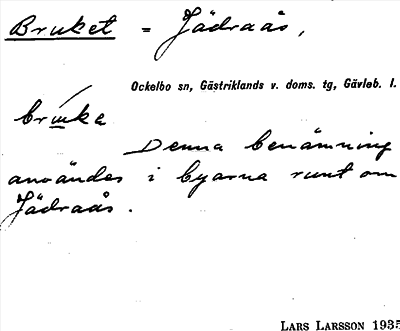 Bruket = Jädraås,
Ockelbo sn, Gästriklands v. doms. tg, Gävleb. l.
Denna benämning
användes i byarna runt om
Jädraås.
LARS LARSSON 1935